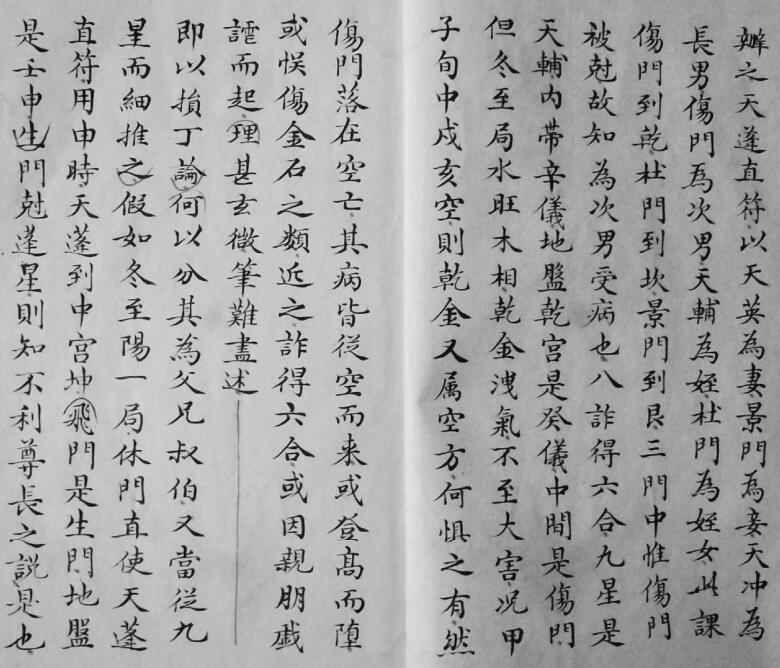 辧之天蓬直符以天英為妻景門為妾天冲為
長男傷門為次男天輔為姪杜門為姪女此課
傷門到乾杜門到坎景門到艮三門中惟傷門
被尅故知為次男受病也八詐得六合九星是
天輔內帶辛儀地盤乾宮是癸儀中間是傷門
但冬至局水旺木相乾金洩氣不至大害况甲
子旬中戍亥空則乾金又属空方何惧之有然
傷門落在空亡其病皆從空而来或登髙而墮
或悞傷金石之類近之詐得六合或因親朋戱
謔而起理甚玄微筆難盡述
即以損丁論何以分其為父兄叔伯又當從九
星而細推之假如冬至陽一局休門直使天蓬
直符用申時天蓬到中宮坤飛門是生門地盤
是壬申生門尅蓬星則知不利尊長之說是也